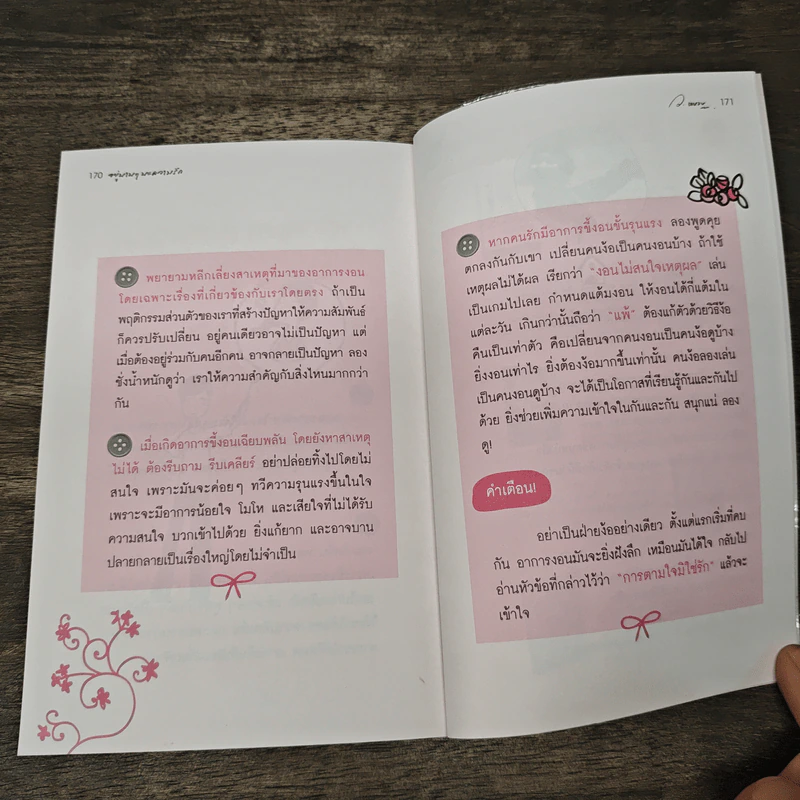 170
พยายามหลีกเลี่ยงสาเหตุที่มาของอาการงอน
โดยเฉพาะเรื่องที่เกี่ยวข้องกับเราโดยตรง ถ้าเป็น
พฤติกรรมส่วนตัวของเราที่สร้างปัญหาให้ความสัมพันธ์
ก็ควรปรับเปลี่ยน อยู่คนเดียวอาจไม่เป็นปัญหา แต่
เมื่อต้องอยู่ร่วมกับคนอีกคน อาจกลายเป็นปัญหา ลอง
ชั่งน้ำหนักดูว่า เราให้ความสำคัญกับสิ่งไหนมากกว่า
กัน
เมื่อเกิดอาการขี้งอนเฉียบพลัน โดยยังหาสาเหตุ
ไม่ได้ ต้องรีบถาม รีบเคลียร์ อย่าปล่อยทิ้งไปโดยไม่
สนใจ เพราะมันจะค่อยๆ ทวีความรุนแรงขึ้นในใจ
เพราะจะมีอาการน้อยใจ โมโห และเสียใจที่ไม่ได้รับ
ความสนใจ บวกเข้าไปด้วย ยิ่งแก้ยาก และอาจบาน
ปลายกลายเป็นเรื่องใหญ่โดยไม่จำเป็น
171
หากคนรักมีอาการขี้งอนขั้นรุนแรง ลองพูดคุย
ตกลงกันกับเขา เปลี่ยนคนง้อเป็นคนงอนบ้าง ถ้าใช้
เหตุผลไม่ได้ผล เรียกว่า "งอนไม่สนใจเหตุผล" เล่น
เป็นเกมไปเลย กำหนดแต้มงอน ให้งอนได้กี่แต้มใน
แต่ละวัน เกินกว่านั้นถือว่า "แพ้" ต้องแก้ตัวด้วยวิธีง้อ
คืนเป็นเท่าตัว คือเปลี่ยนจากคนงอนเป็นคนง้อดูบ้าง
ยิ่งงอนเท่าไร ยิ่งต้องง้อมากขึ้นเท่านั้น คนง้อลองเล่น
เป็นคนงอนดูบ้าง จะได้เป็นโอกาสที่เรียนรู้กันและกันไป
ด้วย ยิ่งช่วยเพิ่มความเข้าใจในกันและกัน สนุกแน่ ลอง
ดู!
คำเตือน!
อย่าเป็นฝ่ายง้ออย่างเดียว ตั้งแต่แรกเริ่มที่คบ
กัน อาการงอนมันจะยิ่งฝังลึก เหมือนมันได้ใจ กลับไป
อ่านหัวข้อที่กล่าวไว้ว่า "การตามใจมิใช่รัก" แล้วจะ
เข้าใจ